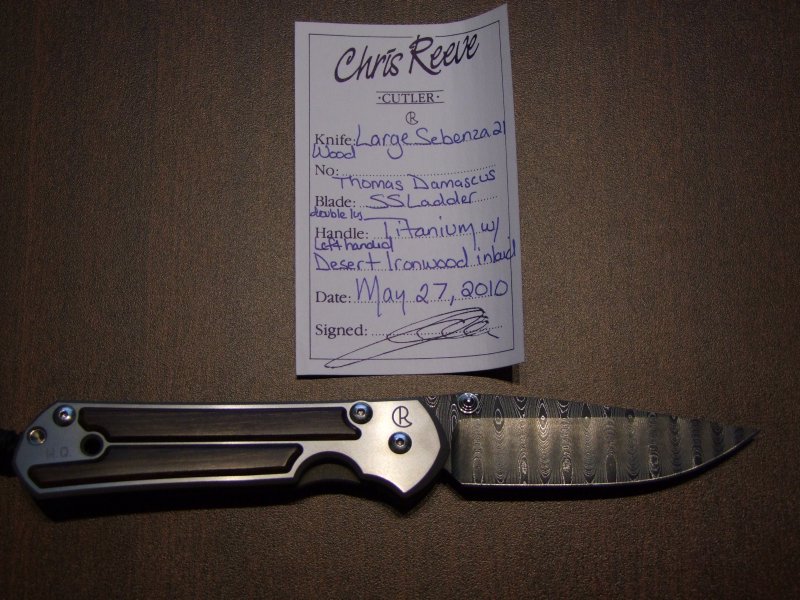 Chris Reeve
·CUTLER·
Knife: Large Sebenza 21
Wood
No:
Thomas Damascus
Blade: SS Ladder
double lug
Handle: Titanium w/
Left handed
Desert Ironwood inlaid
Date: May 27, 2010
Signed: